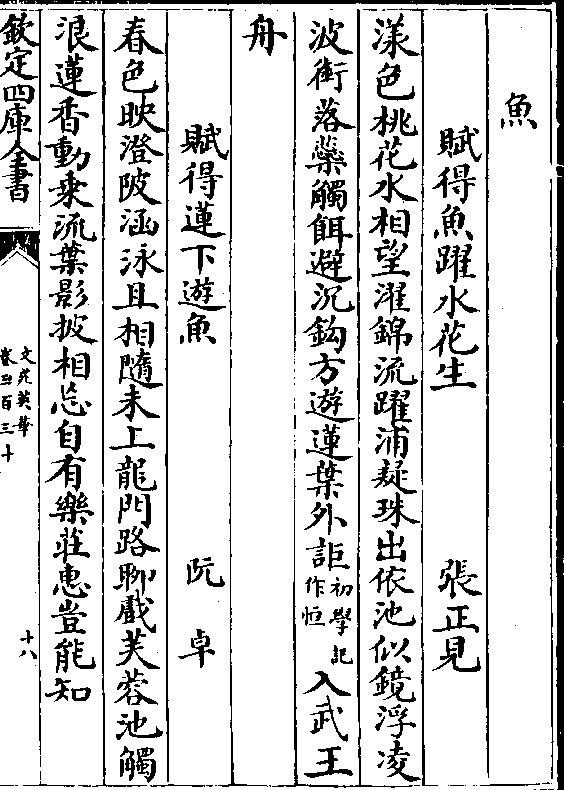 魚
賦得魚躍水花生 張正見
漾色桃花水相望濯錦流躍浦疑珠出依池似鏡浮凌
波衝落蘂觸餌避沉鈎方遊蓮葉外詎初學記作恒入武王
舟
賦得蓮下遊魚 阮卓
春色映澄陂涵泳且相隨未上龍門路聊戲芙蓉池觸
浪蓮香動乗流葉影披相忘自有樂莊惠豈能知
欽定四庫全書
文苑英華
卷三百三十
十八